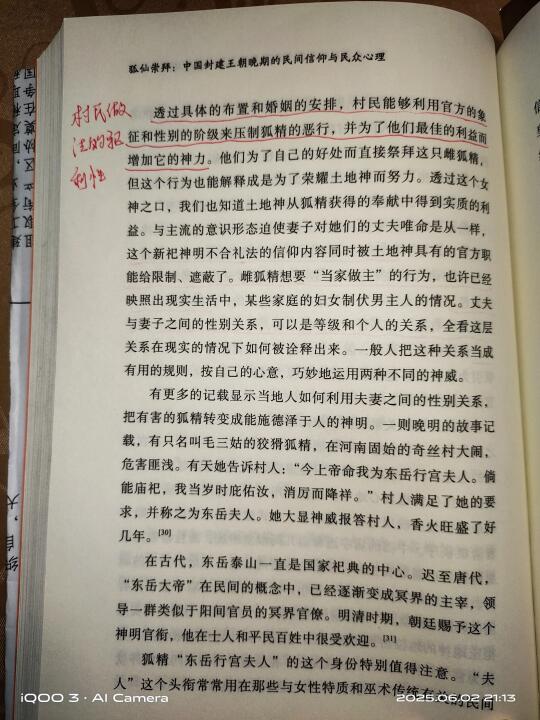 狐仙崇拜：中国封建王朝晚期的民间信仰与民众心理
村民做
法的权
利性
透过具体的布置和婚姻的安排，村民能够利用官方的象
征和性别的阶级来压制狐精的恶行，并为了他们最佳的利益而
增加它的神力。他们为了自己的好处而直接祭拜这只雌狐精，
但这个行为也能解释成是为了荣耀土地神而努力。透过这个女
神之口，我们也知道土地神从狐精获得的奉献中得到实质的利
益。与主流的意识形态迫使妻子对她们的丈夫唯命是从一样，
这个新祀神明不合礼法的信仰内容同时被土地神具有的官方职
能给限制、遮蔽了。雌狐精想要“当家做主”的行为，也许已经
映照出现实生活中，某些家庭的妇女制伏男主人的情况。丈夫
与妻子之间的性别关系，可以是等级和个人的关系，全看这层
关系在现实的情况下如何被诠释出来。一般人把这种关系当成
有用的规则，按自己的心意，巧妙地运用两种不同的神威。
有更多的记载显示当地人如何利用夫妻之间的性别关系，
把有害的狐精转变成能施德泽于人的神明。一则晚明的故事记
载，有只名叫毛三姑的狡猾狐精，在河南固始的奇丝村大闹，
危害匪浅。有天她告诉村人：“今上帝命我为东岳行宫夫人。倘
能庙祀，我当岁时庇佑汝，消厉而降祥。”村人满足了她的要
求，并称之为东岳夫人。她大显神威报答村人，香火旺盛了好
几年。[30]
在古代，东岳泰山一直是国家祀典的中心。迟至唐代，
“东岳大帝”在民间的概念中，已经逐渐变成冥界的主宰，领
导一群类似于阳间官员的冥界官僚。明清时期，朝廷赐予这个
神明官衔，他在士人和平民百姓中很受欢迎。[31]
狐精“东岳行宫夫人”的这个身份特别值得注意。“夫
人”这个头衔常常用在那些与女性特质和巫术传统有关的民间
iQOO 3 · AI Camera
2025.06.02 21:13